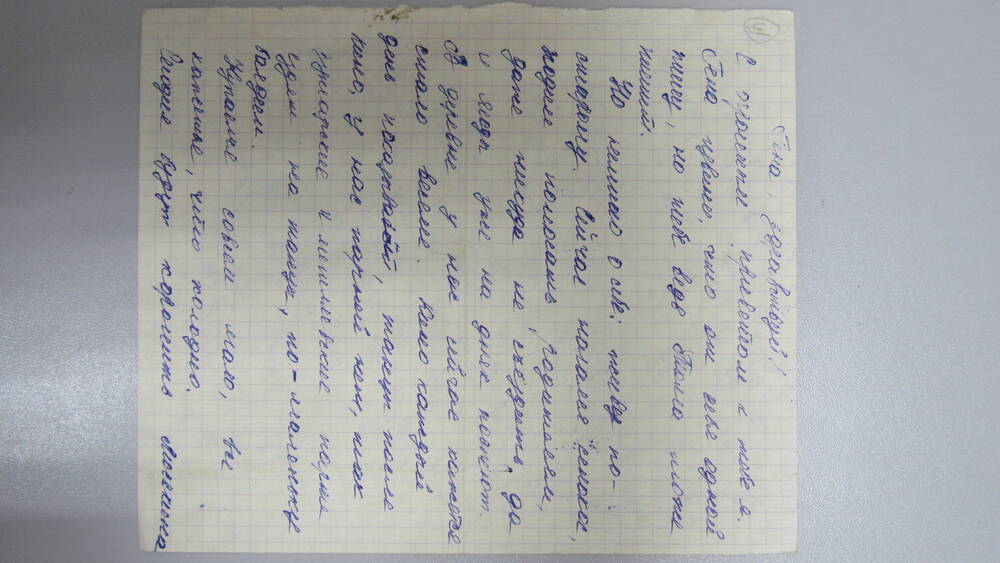 41
Гена, здравствуй!
С огромным приветом к тебе я.
Гена извини, что от себя одной
пишу, но тебе ведь Тома тоже
пишет.
Но немного о себе: живу по-
старому. Сейчас начался сенокос,
ходим помогать родителям,
даже никуда не съездить, да
и ягоды уже на днях поспеют.
В деревне у нас сейчас кажется
стало веселе. Кино каждый
день показывают, танцы после
кино, у нас парней нет, так
и парни
на танцы, по-маленьку
балдим.
Купаемся совсем мало, все
кажется, что холодно.
Сегодня будут хоронить